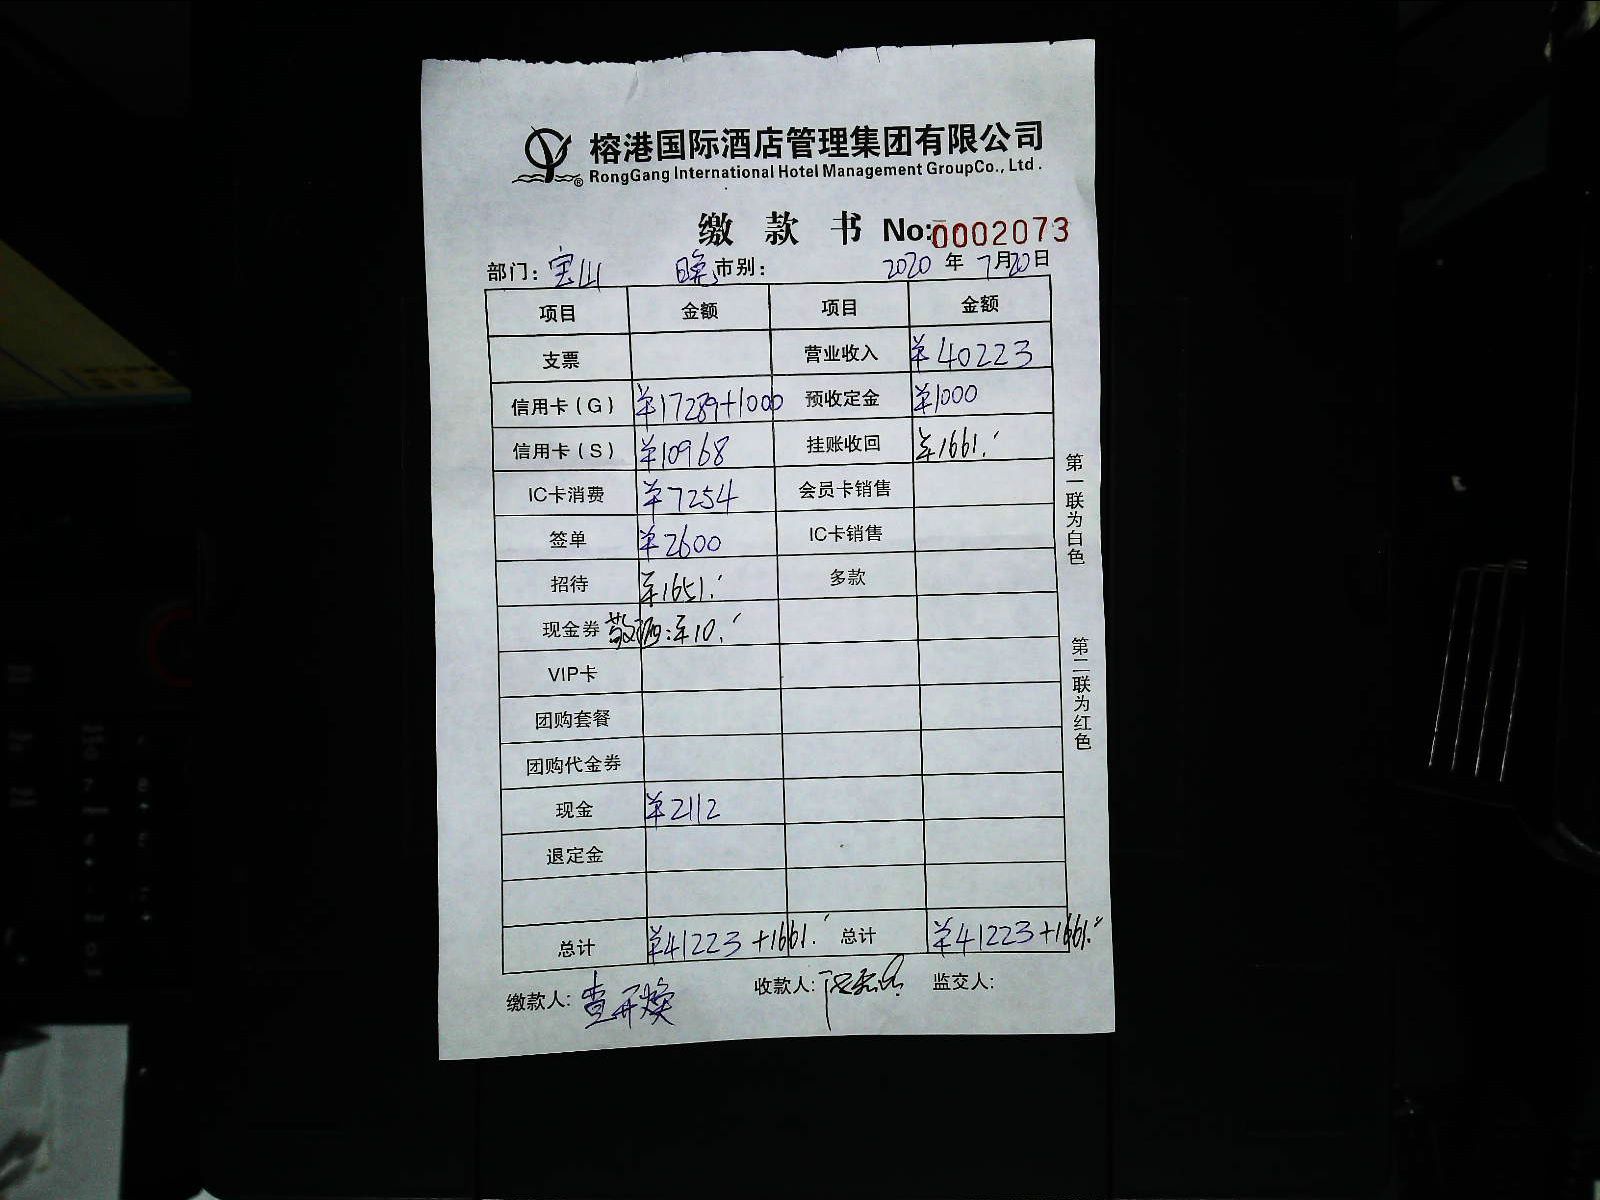 榕港国际酒店管理集团有限公司
RongGang International Hotel Management GroupCo., Ltd.
缴 款 书 No:0002073
部门: 宝山 晚 市别: 2020 年 7月20日
项目 金额 项目 金额
支票 营业收入 ¥40223
信用卡(G) ¥17289+1000 预收定金 ¥1000
信用卡(S) ¥10968 挂账收回 ¥1661.
IC卡消费 ¥7254 会员卡销售
签单 ¥2600 IC卡销售
招待 ¥1651. 多款
现金券 敬酒:¥10.
VIP卡
团购套餐
团购代金券
现金 ¥2112
退定金
总计 ¥41223+1661. 总计 ¥41223+1661.
缴款人: 查开焕 收款人: 监交人:
第一联为白色
第二联为红色